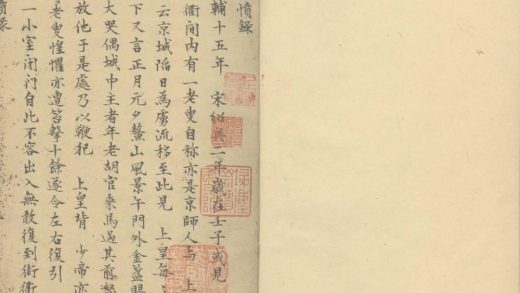 憤錄
輔十五年　宋紹興二年歲在壬子或見
衢間内有一老叟自称亦是京師人与　上
云京城陷日為虜流移至此見　上皇每
下又言正月元夕鰲山風景午門外金盃賜
大哭偶城中王者年老胡官乗馬過其前怒
放他于是處乃以鞭犯　上皇背　少帝亦
老叟惶懼亦遭笞擊十餘遂令左右復引
一小室閉门自此不容出入無敢復到街衢
憤錄